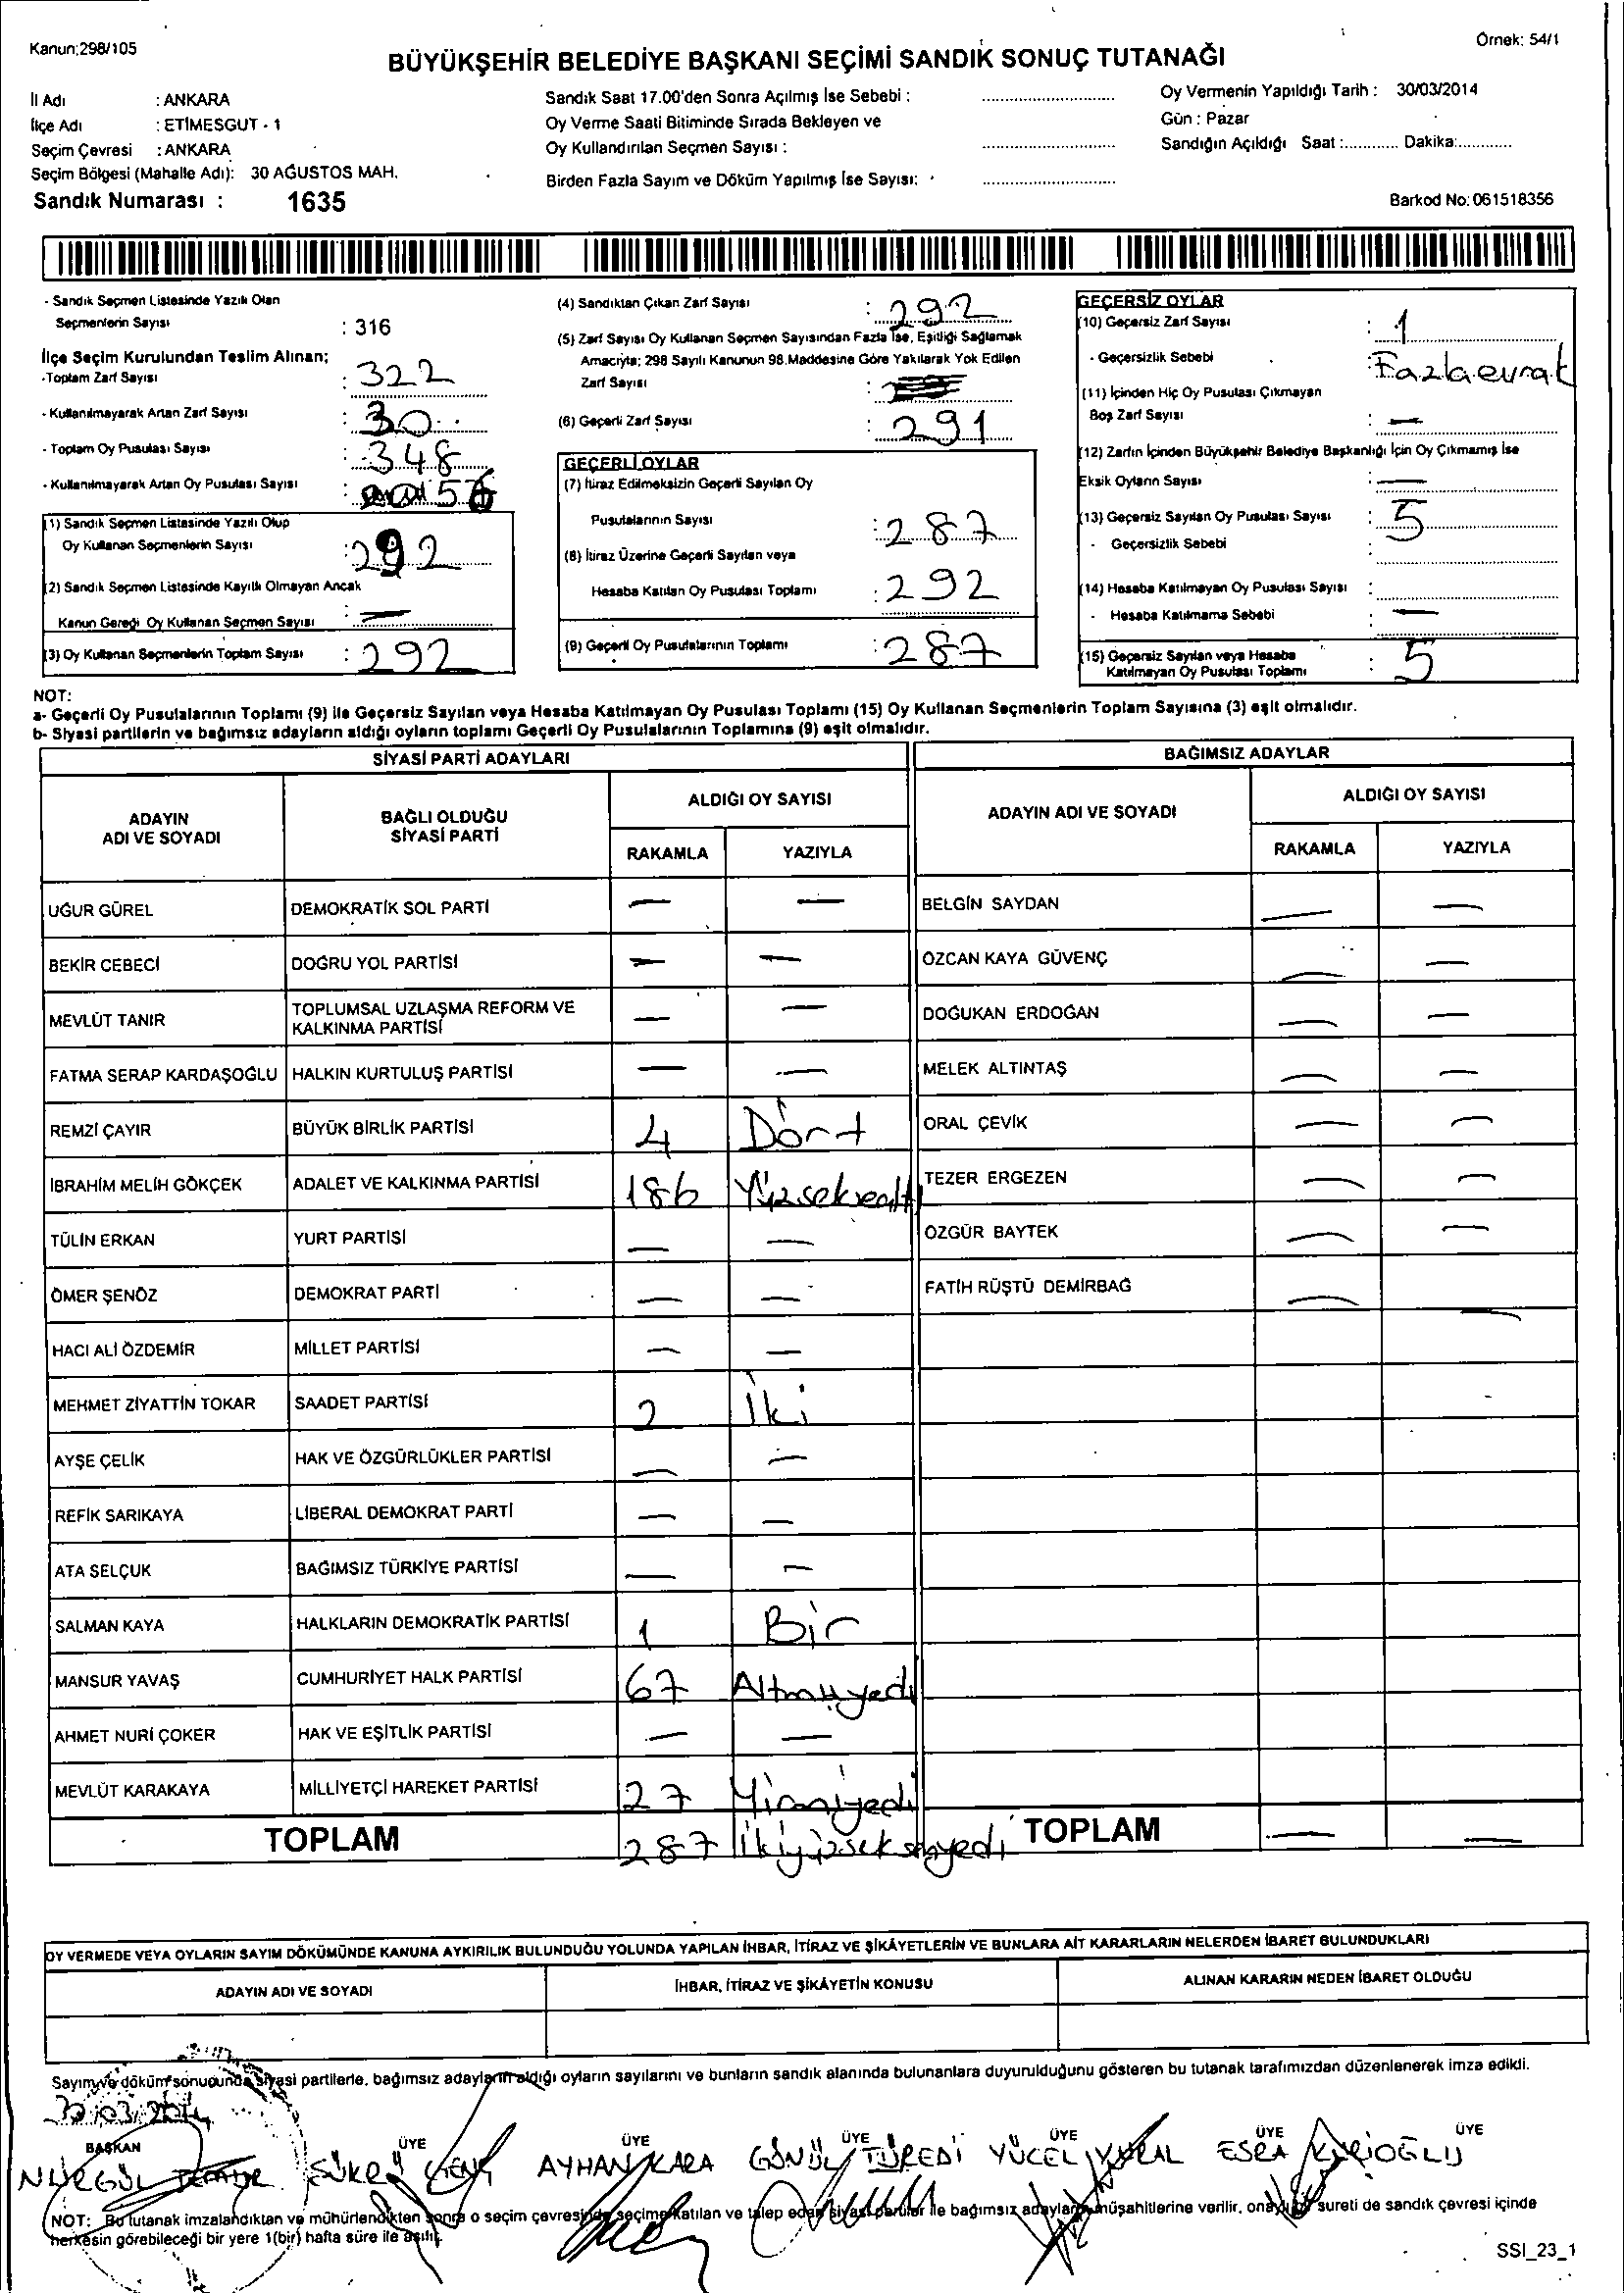 Kanun;298/105
Örnek: 54/1
BÜYÜKŞEHİR BELEDİYE BAŞKANI SEÇİMİ SANDIK SONUÇ TUTANAĞI
İl Adı : ANKARA
İlçe Adı : ETİMESGUT - 1
Seçim Çevresi : ANKARA
Seçim Bölgesi (Mahalle Adı): 30 AĞUSTOS MAH.
Sandık Numarası : 1635
Sandık Saat 17.00'den Sonra Açılmış İse Sebebi :
Oy Verme Saati Bitiminde Sırada Bekleyen ve
Oy Kullandırılan Seçmen Sayısı :
Birden Fazla Sayım ve Döküm Yapılmış İse Sayısı:
Oy Vermenin Yapıldığı Tarih : 30/03/2014
Gün : Pazar
Sandığın Açıldığı Saat :............ Dakika:............
Barkod No: 061518356
- Sandık Seçmen Listesinde Yazılı Olan
Seçmenlerin Sayısı : 316
İlçe Seçim Kurulundan Teslim Alınan;
-Toplam Zarf Sayısı : 322
- Kullanılmayarak Artan Zarf Sayısı : 30
- Toplam Oy Pusulası Sayısı : 348
- Kullanılmayarak Artan Oy Pusulası Sayısı : 56
(1) Sandık Seçmen Listesinde Yazılı Olup
Oy Kullanan Seçmenlerin Sayısı : 292
(2) Sandık Seçmen Listesinde Kayıtlı Olmayan Ancak
Kanun Gereği Oy Kullanan Seçmen Sayısı : —
(3) Oy Kullanan Seçmenlerin Toplam Sayısı : 292
(4) Sandıktan Çıkan Zarf Sayısı : 292
(5) Zarf Sayısı Oy Kullanan Seçmen Sayısından Fazla İse, Eşitliği Sağlamak
Amacıyla; 298 Sayılı Kanunun 98.Maddesine Göre Yakılarak Yok Edilen
Zarf Sayısı :
(6) Geçerli Zarf Sayısı : 291
GEÇERLİ OYLAR
(7) İtiraz Edilmeksizin Geçerli Sayılan Oy
Pusulalarının Sayısı : 287
(8) İtiraz Üzerine Geçerli Sayılan veya
Hesaba Katılan Oy Pusulası Toplamı : 292
(9) Geçerli Oy Pusulalarının Toplamı : 287
GEÇERSİZ OYLAR
(10) Geçersiz Zarf Sayısı : 1
- Geçersizlik Sebebi : Fazla evrak
(11) İçinden Hiç Oy Pusulası Çıkmayan
Boş Zarf Sayısı : —
(12) Zarfın İçinden Büyükşehir Belediye Başkanlığı İçin Oy Çıkmamış İse
Eksik Oyların Sayısı : —
(13) Geçersiz Sayılan Oy Pusulası Sayısı : 5
- Geçersizlik Sebebi :
(14) Hesaba Katılmayan Oy Pusulası Sayısı :
- Hesaba Katılmama Sebebi : —
(15) Geçersiz Sayılan veya Hesaba
Katılmayan Oy Pusulası Toplamı : 5
NOT:
a- Geçerli Oy Pusulalarının Toplamı (9) ile Geçersiz Sayılan veya Hesaba Katılmayan Oy Pusulası Toplamı (15) Oy Kullanan Seçmenlerin Toplam Sayısına (3) eşit olmalıdır.
b- Siyasi partilerin ve bağımsız adayların aldığı oyların toplamı Geçerli Oy Pusulalarının Toplamına (9) eşit olmalıdır.
SİYASİ PARTİ ADAYLARI
ADAYIN ADI VE SOYADI
BAĞLI OLDUĞU SİYASİ PARTİ
ALDIĞI OY SAYISI
RAKAMLA YAZIYLA
UĞUR GÜREL DEMOKRATİK SOL PARTİ — —
BEKİR CEBECİ DOĞRU YOL PARTİSİ — —
MEVLÜT TANIR TOPLUMSAL UZLAŞMA REFORM VE KALKINMA PARTİSİ — —
FATMA SERAP KARDAŞOĞLU HALKIN KURTULUŞ PARTİSİ — —
REMZİ ÇAYIR BÜYÜK BİRLİK PARTİSİ 4 Dört
İBRAHİM MELİH GÖKÇEK ADALET VE KALKINMA PARTİSİ 186 Yüzseksenaltı
TÜLİN ERKAN YURT PARTİSİ — —
ÖMER ŞENÖZ DEMOKRAT PARTİ — —
HACI ALİ ÖZDEMİR MİLLET PARTİSİ — —
MEHMET ZİYATTİN TOKAR SAADET PARTİSİ 2 İki
AYŞE ÇELİK HAK VE ÖZGÜRLÜKLER PARTİSİ — —
REFİK SARIKAYA LİBERAL DEMOKRAT PARTİ — —
ATA SELÇUK BAĞIMSIZ TÜRKİYE PARTİSİ — —
SALMAN KAYA HALKLARIN DEMOKRATİK PARTİSİ 1 Bir
MANSUR YAVAŞ CUMHURİYET HALK PARTİSİ 67 Altmışyedi
AHMET NURİ ÇOKER HAK VE EŞİTLİK PARTİSİ — —
MEVLÜT KARAKAYA MİLLİYETÇİ HAREKET PARTİSİ 27 Yirmiyedi
TOPLAM 287 İkiyüzseksenyedi
BAĞIMSIZ ADAYLAR
ADAYIN ADI VE SOYADI
ALDIĞI OY SAYISI
RAKAMLA YAZIYLA
BELGİN SAYDAN — —
ÖZCAN KAYA GÜVENÇ — —
DOĞUKAN ERDOĞAN — —
MELEK ALTINTAŞ — —
ORAL ÇEVİK — —
TEZER ERGEZEN — —
ÖZGÜR BAYTEK — —
FATİH RÜŞTÜ DEMİRBAĞ — —
TOPLAM — —
OY VERMEDE VEYA OYLARIN SAYIM DÖKÜMÜNDE KANUNA AYKIRILIK BULUNDUĞU YOLUNDA YAPILAN İHBAR, İTİRAZ VE ŞİKÂYETLERİN VE BUNLARA AİT KARARLARIN NELERDEN İBARET BULUNDUKLARI
ADAYIN ADI VE SOYADI
İHBAR, İTİRAZ VE ŞİKÂYETİN KONUSU
ALINAN KARARIN NEDEN İBARET OLDUĞU
Sayım ve döküm sonucunda siyasi partilerle, bağımsız adayların aldığı oyların sayılarını ve bunların sandık alanında bulunanlara duyurulduğunu gösteren bu tutanak tarafımızdan düzenlenerek imza edildi.
30/03/2014
BAŞKAN ÜYE ÜYE ÜYE ÜYE ÜYE ÜYE
NURGÜL ŞÜKRÜ GENÇ AYHAN KARA GÖNÜL TÜREDİ YÜCEL VURAL ESRA
NOT: Bu tutanak imzalandıktan ve mühürlendikten sonra o seçim çevresinde seçime katılan ve talep eden siyasi partiler ile bağımsız adayların müşahitlerine verilir, onaylı bir sureti de sandık çevresi içinde
herkesin görebileceği bir yere 1(bir) hafta süre ile asılır.
SSI_23_1